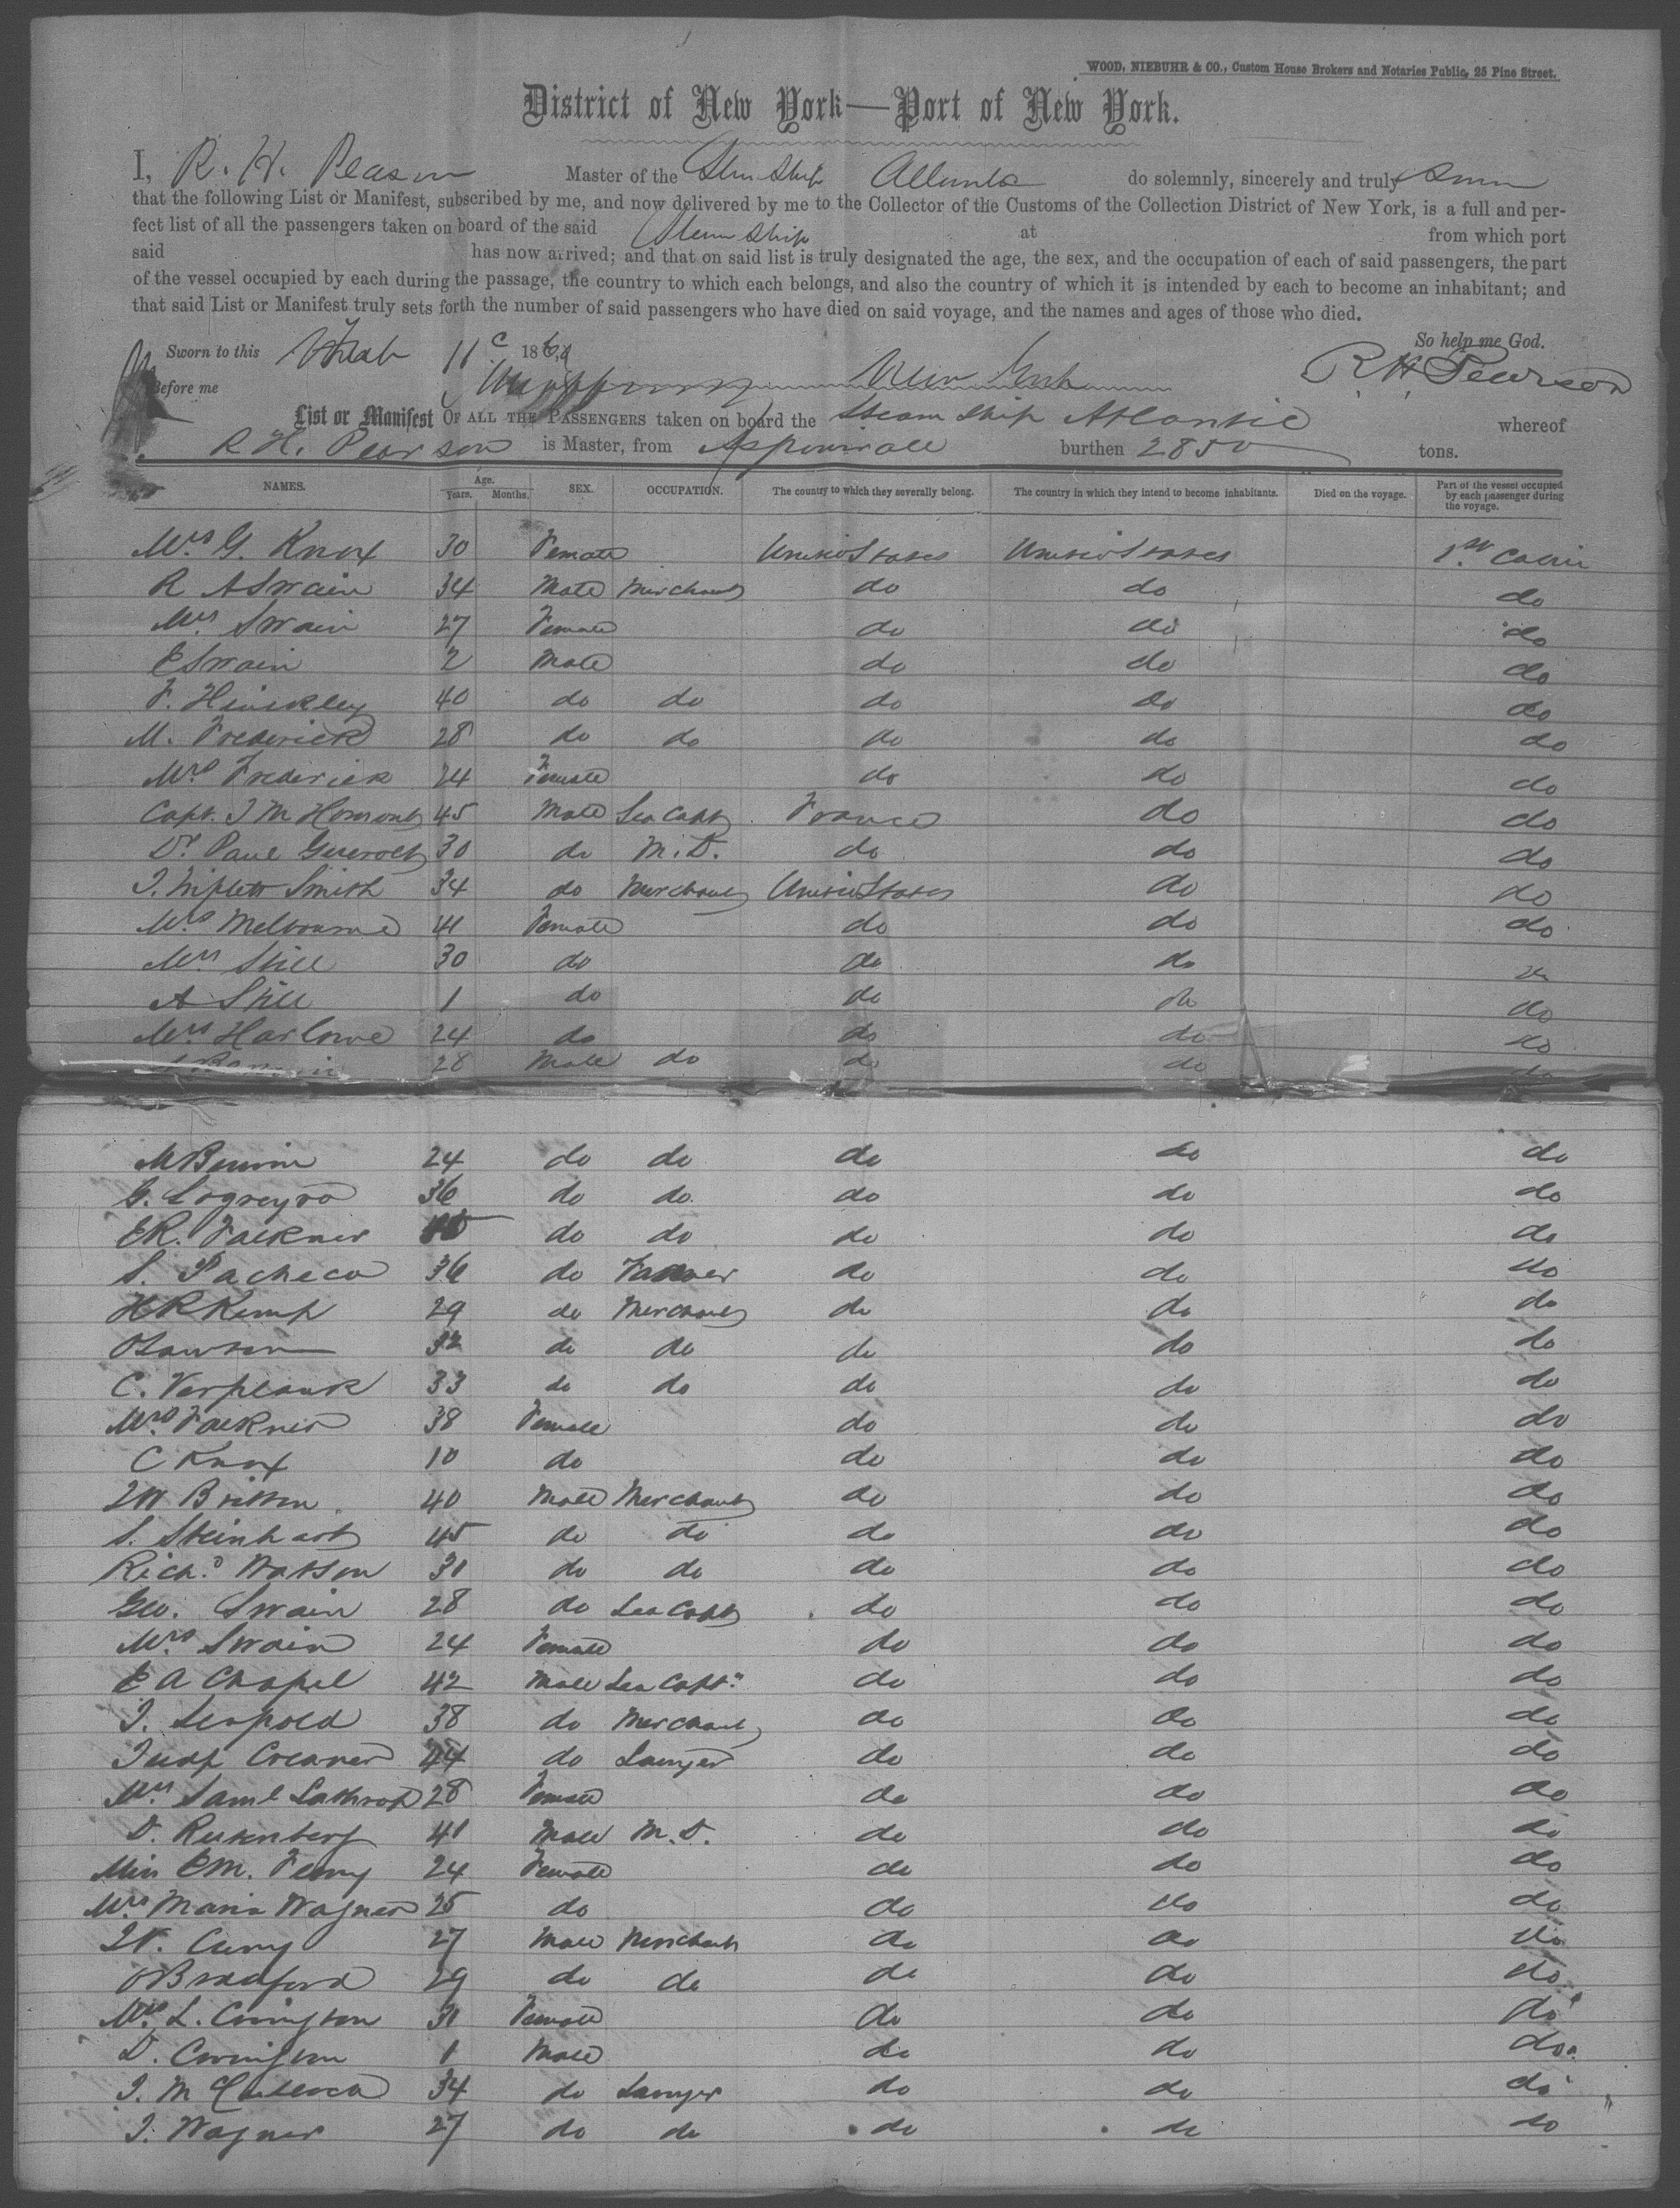 WOOD, NIEBUHR & CO., Custom House Brokers and Notaries Public, 25 Pine Street.
District of New York—Port of New York.
I, R. H. Pearson Master of the Stm Ship Atlantic do solemnly, sincerely and truly
that the following List or Manifest, subscribed by me, and now delivered by me to the Collector of the Customs of the Collection District of New York, is a full and per-
fect list of all the passengers taken on board of the said Steam Ship at from which port
said has now arrived; and that on said list is truly designated the age, the sex, and the occupation of each of said passengers, the part
of the vessel occupied by each during the passage, the country to which each belongs, and also the country of which it is intended by each to become an inhabitant; and
that said List or Manifest truly sets forth the number of said passengers who have died on said voyage, and the names and ages of those who died.
So help me God.
Sworn to this 11 186
R H Pearson
Before me New York
List or Manifest OF ALL THE PASSENGERS taken on board the Steam Ship Atlantic whereof
R H. Pearson is Master, from Aspinwall burthen 2850 tons.
NAMES. Age. Years. Months. SEX. OCCUPATION. The country to which they severally belong. The country in which they intend to become inhabitants. Died on the voyage. Part of the vessel occupied by each passenger during the voyage.
Mrs G. Knox 30 Female United States United States 1st Cabin
R A Swain 34 Male Merchant do do do
Mrs Swain 27 Female do do do
E Swain 2 Male do do do
F. Hinckley 40 do do do do do
M. Frederick 28 do do do do do
Mrs Frederick 24 Female do do do
Capt. J M 45 Male Sea Capt France do do
Dr Paul 30 do M.D. do do do
J. Smith 34 do Merchant United States do do
Mrs Melbourne 41 Female do do do
Mrs Still 30 do do do do
A Still 1 do do do do
Mrs Harlowe 24 do do do do
28 Male do do do do
M 24 do do do do do
G. 36 do do do do do
E R. Falkner do do do do do
S. Pacheco 36 do Farmer do do do
H R Kemp 29 do Merchant do do do
O Lawson 32 do do do do do
C. Verplank 33 do do do do do
Mrs Falkner 38 Female do do do
C Knox 10 do do do do
J W Britton 40 Male Merchant do do do
S. Steinhart 45 do do do do do
Richd Watson 31 do do do do do
Geo. Swain 28 do Sea Capt do do do
Mrs Swain 24 Female do do do
E A Chapel 42 Male Sea Capt. do do do
J. Leopold 38 do Merchant do do do
Judge 44 do Lawyer do do do
Mrs Saml Lathrop 28 Female do do do
D. 41 Male M.D. do do do
Miss E M. 24 Female do do do
Mrs Maria Wagner 25 do do do do
27 Male Merchant do do do
O Bradford 29 do do do do do
Mrs L. Covington 31 Female do do do
D. Covington 1 Male do do do
J. M 34 do Lawyer do do do
J. Wagner 27 do do do do do